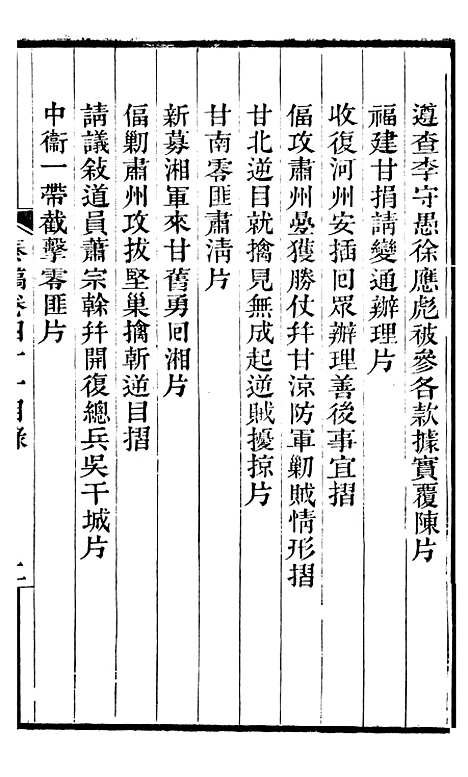 遵查李守愚徐應彪被參各款據實覆陳片
福建甘捐請變通辦理片
收復河州安插回眾辦理善後事宜摺
偪攻肅州㬪獲勝仗幷甘涼防軍剿賊情形摺
甘北逆目就擒見無成起逆賊擾掠片
甘南零匪肅淸片
新募湘軍來甘舊勇回湘片
偪剿肅州攻拔堅巢擒斬逆目摺
請議敍道員蕭宗榦幷開復總兵吳干城片
中衞一帶截擊零匪片
奏稿卷四十一目錄